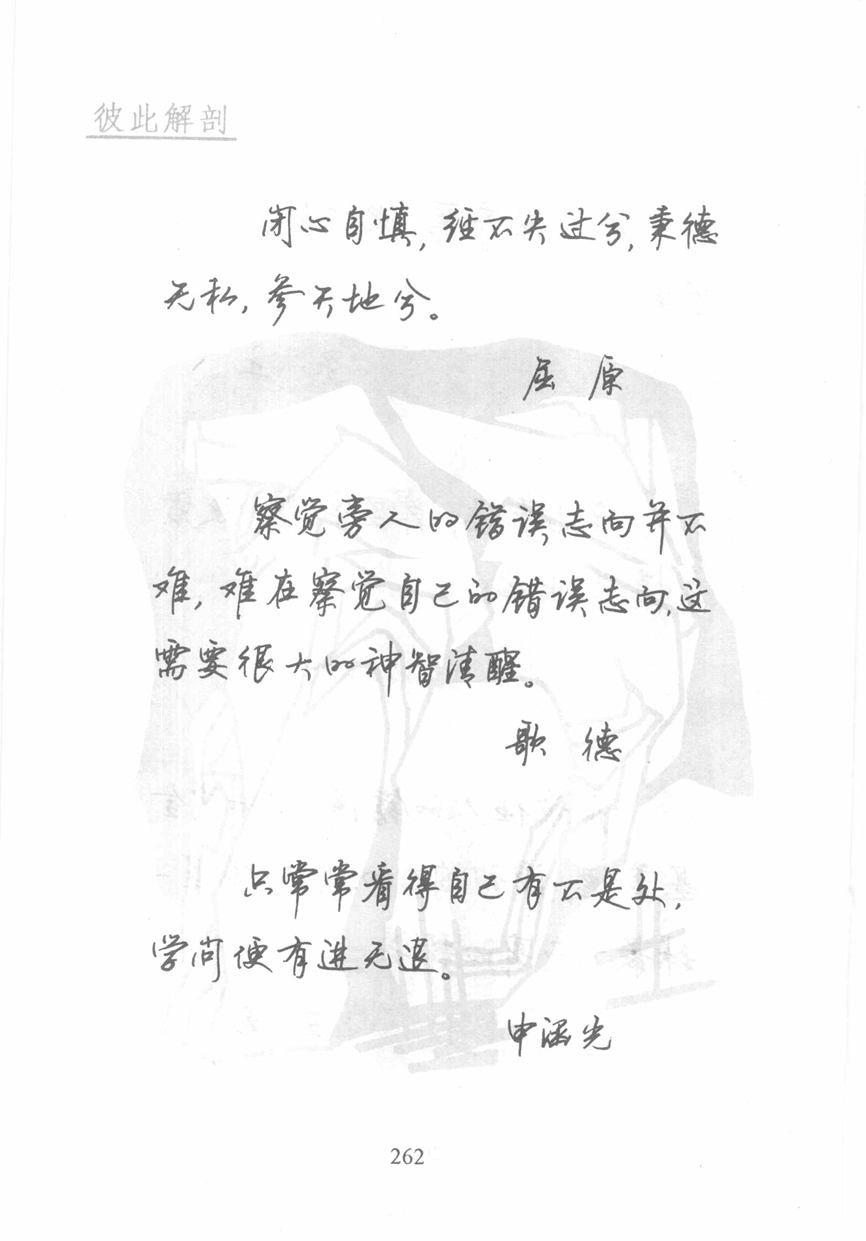 彼此解剖
闭心自慎，经不失过兮，秉德
无私，参天地兮。
屈 原
察觉旁人的错误志向并不
难，难在察觉自己的错误志向，这
需要很大的神智清醒。
歌 德
只常常看得自己有不是处，
学问便有进无退。
申涵光
262